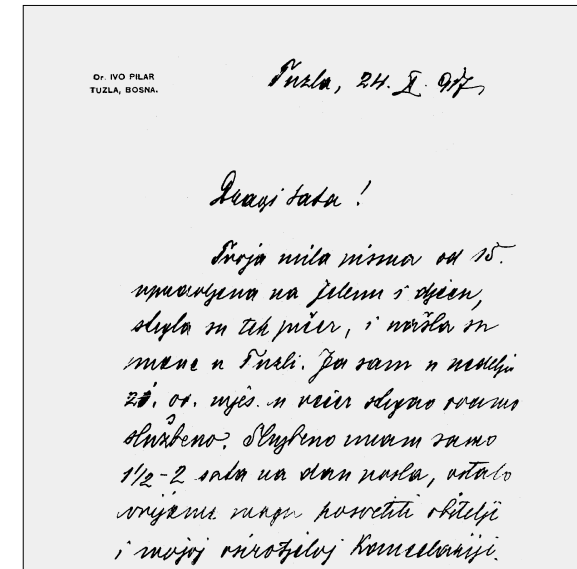 Dr. IVO PILAR
TUZLA, BOSNA.
Tuzla, 24. X. 917
Dragi tata!
Tvoja mila pisma od 15.
upravljena na Jelenu i djecu,
stigla su tek jučer, i našla su
mene u Tuzli. Ja sam u nedelju
21. ov. mjes. u večer stigao ovamo
službeno. Službeno imam samo
1½-2 sata na dan posla, ostalo
vrijeme mogu posvetiti obitelji
i mojoj osirotjeloj Kancelariji.